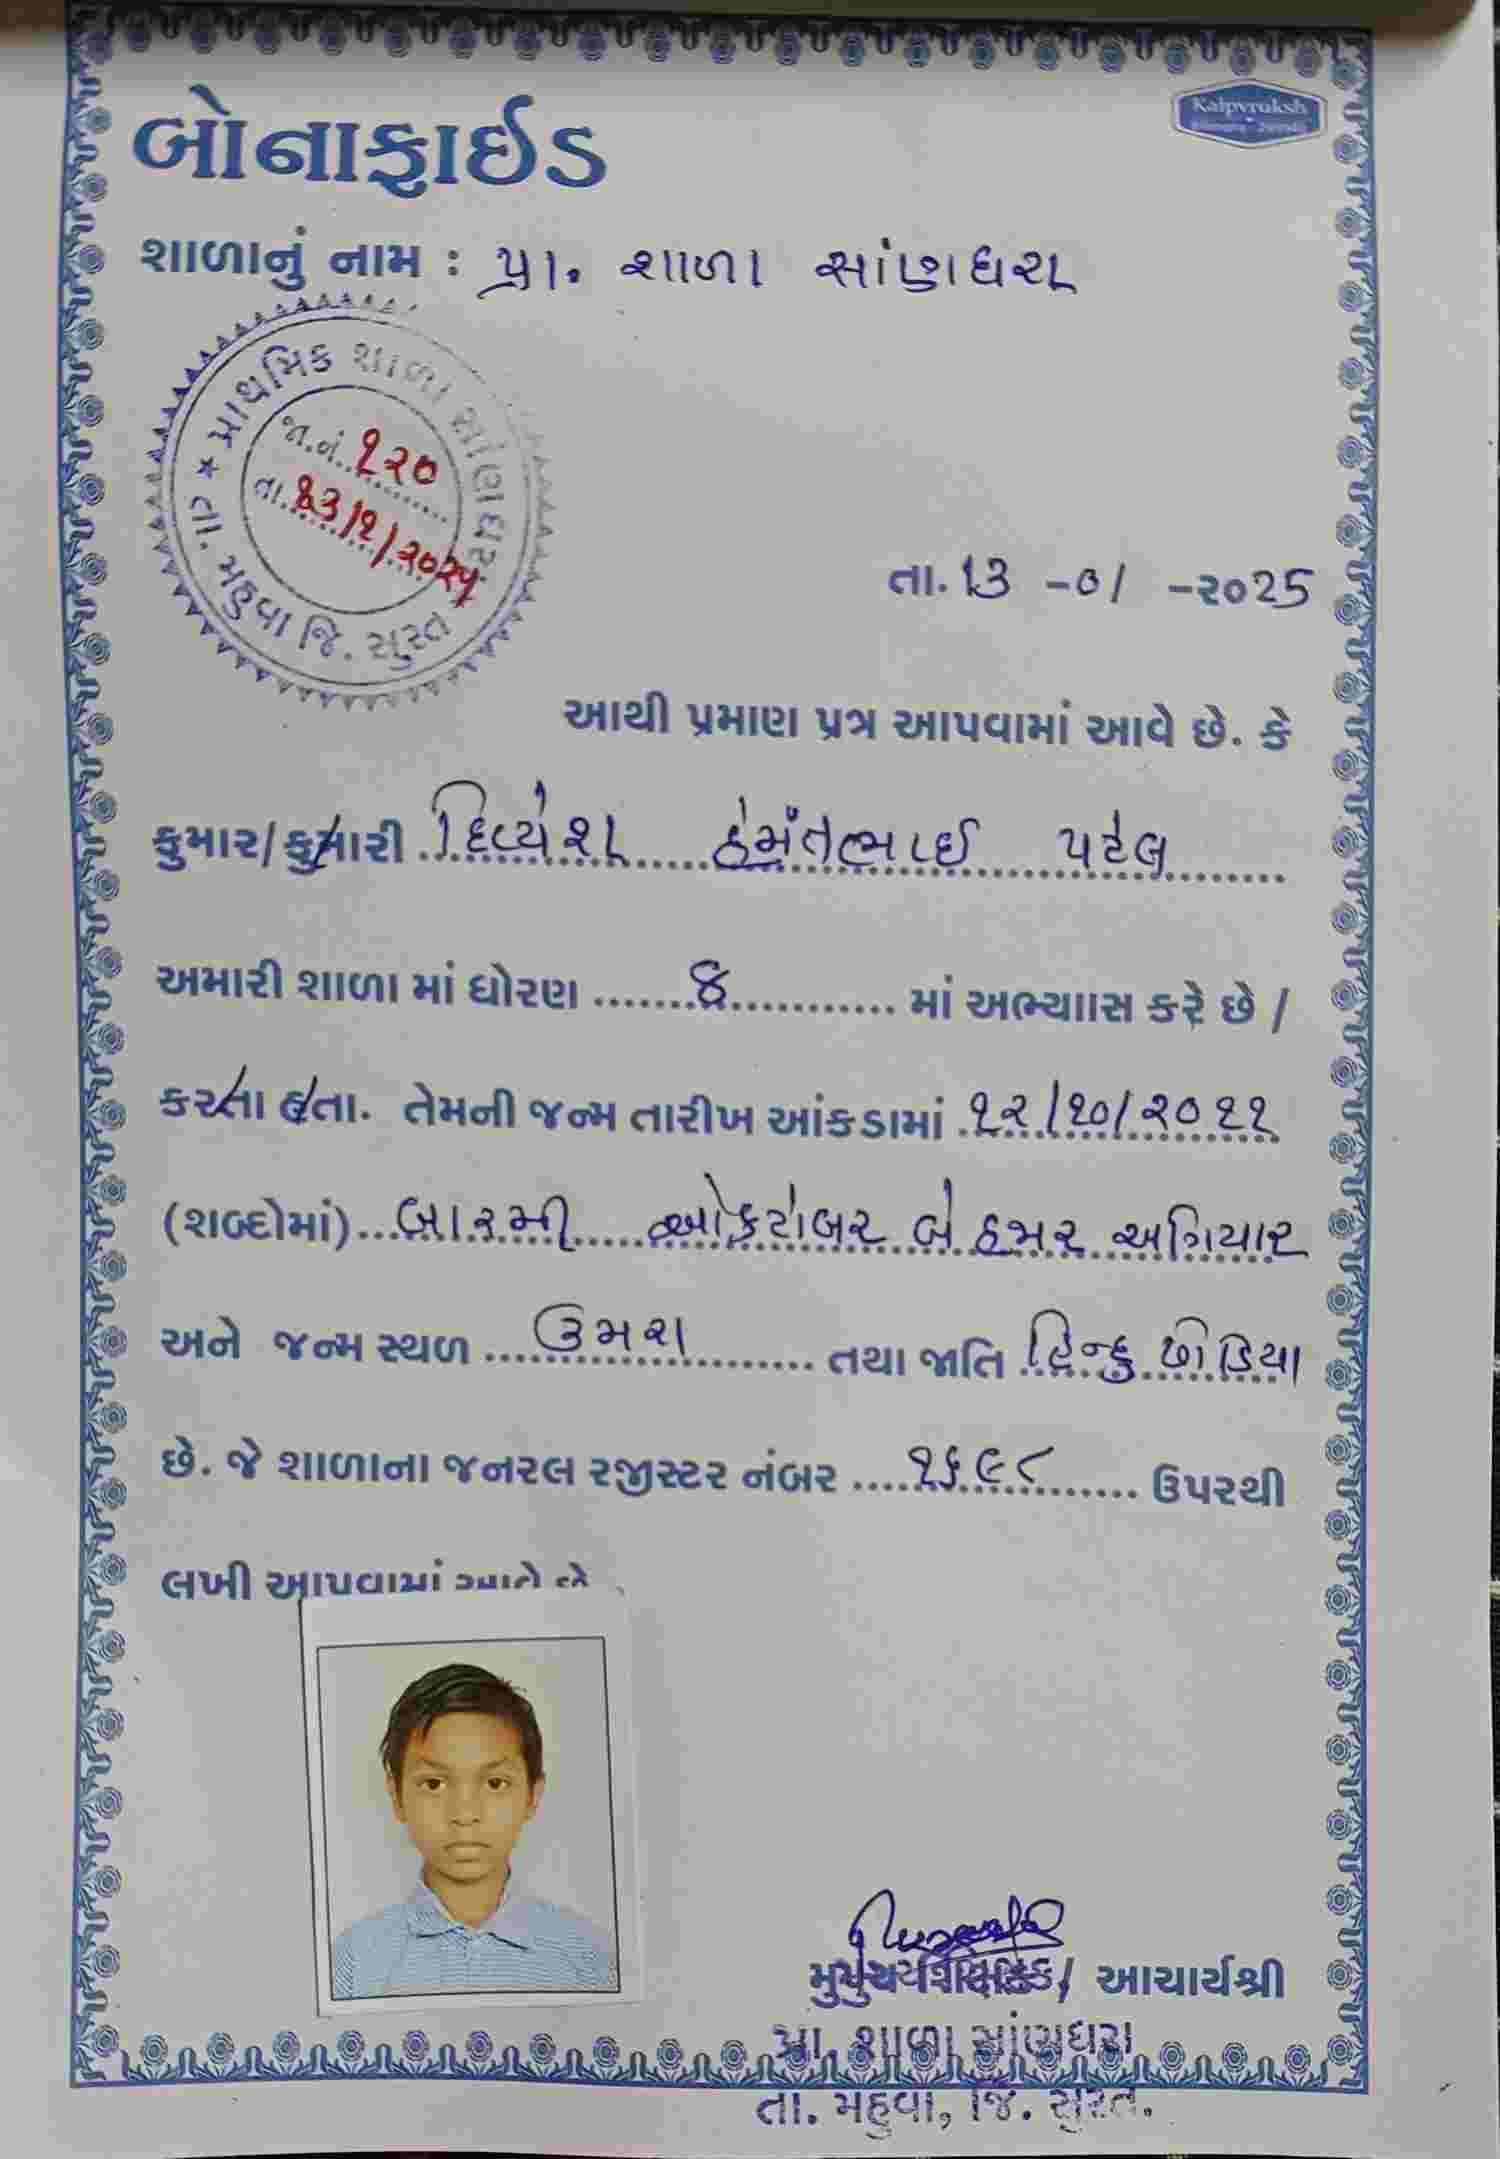 Kalpvruksh
બોનાફાઈડ
શાળાનું નામ : પ્રા. શાળા સાંણધરા
પ્રાથમિક શાળા સાંણધરા
★ તા. મહુવા જિ. સુરત
જા.નં. ૧૨૦
તા. ૧૩/૧/૨૦૨૫
તા. 13 -01 -૨૦25
આથી પ્રમાણ પત્ર આપવામાં આવે છે. કે
કુમાર/કુમારી દિવ્યેશ હેમંતભાઈ પટેલ
અમારી શાળા માં ધોરણ ....... ૪ ........... માં અભ્યાસ કરે છે /
કરતા હતા. તેમની જન્મ તારીખ આંકડામાં ૧૨/૧૦/૨૦૧૧
(શબ્દોમાં) બારમી ઓક્ટોબર બે હજાર અગિયાર
અને જન્મ સ્થળ ઉમરા તથા જાતિ હિન્દુ ધોડિયા
છે. જે શાળાના જનરલ રજીસ્ટર નંબર .... ૧૬૯૮ ........ ઉપરથી
લખી આપવામાં આવે છે
મુખ્ય શિક્ષક / આચાર્યશ્રી
પ્રા. શાળા સાંણધરા
તા. મહુવા, જિ. સુરત.